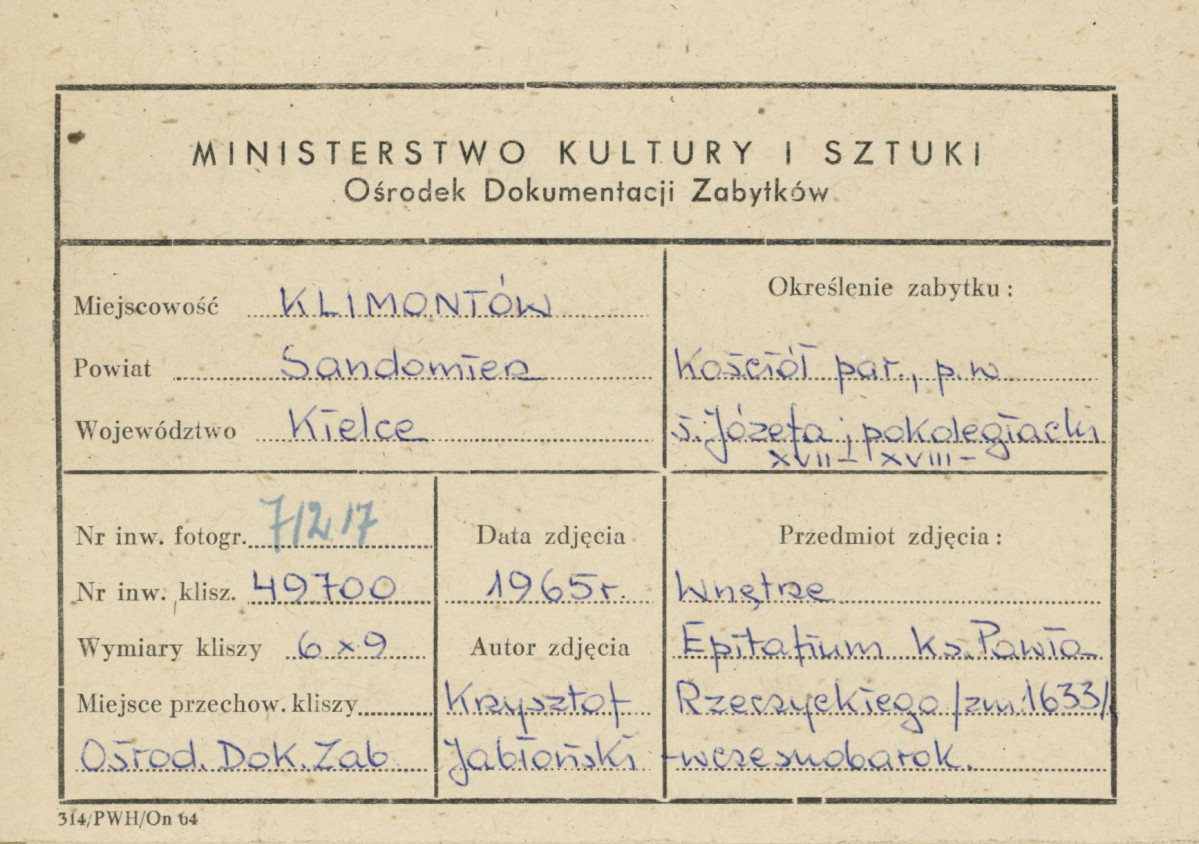 MINISTERSTWO KULTURY I SZTUKI
Ośrodek Dokumentacji Zabytków
Miejscowość KLIMONTÓW
Powiat Sandomierz
Województwo Kielce
Określenie zabytku:
Kościół par., p.w.
ś. Józefa; pokolegiacki
XVII – XVIII –
Nr inw. fotogr. 71217
Nr inw. klisz. 49700
Wymiary kliszy 6 x 9
Miejsce przechow. kliszy
Ośrod. Dok. Zab
Data zdjęcia
1965 r.
Autor zdjęcia
Krzysztof
Jabłoński
Przedmiot zdjęcia:
Wnętrze
Epitafium ks. Pawła
Rzeczyckiego /zm. 1633/
-wczesnobarok.
314/PWH/On 64